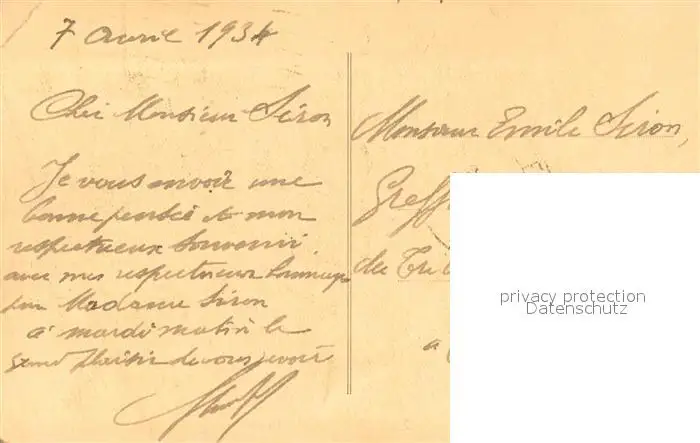 7 avril 1934
Cher Monsieur Siron
Je vous envoie une
bonne pensée et mon
respectueux souvenir
avec mes respectueux hommages
pour Madame Siron
à mardi matin le
grand plaisir de vous revoir
Monsieur Emile Siron,
Greff
du Trib
a
privacy protection
Datenschutz